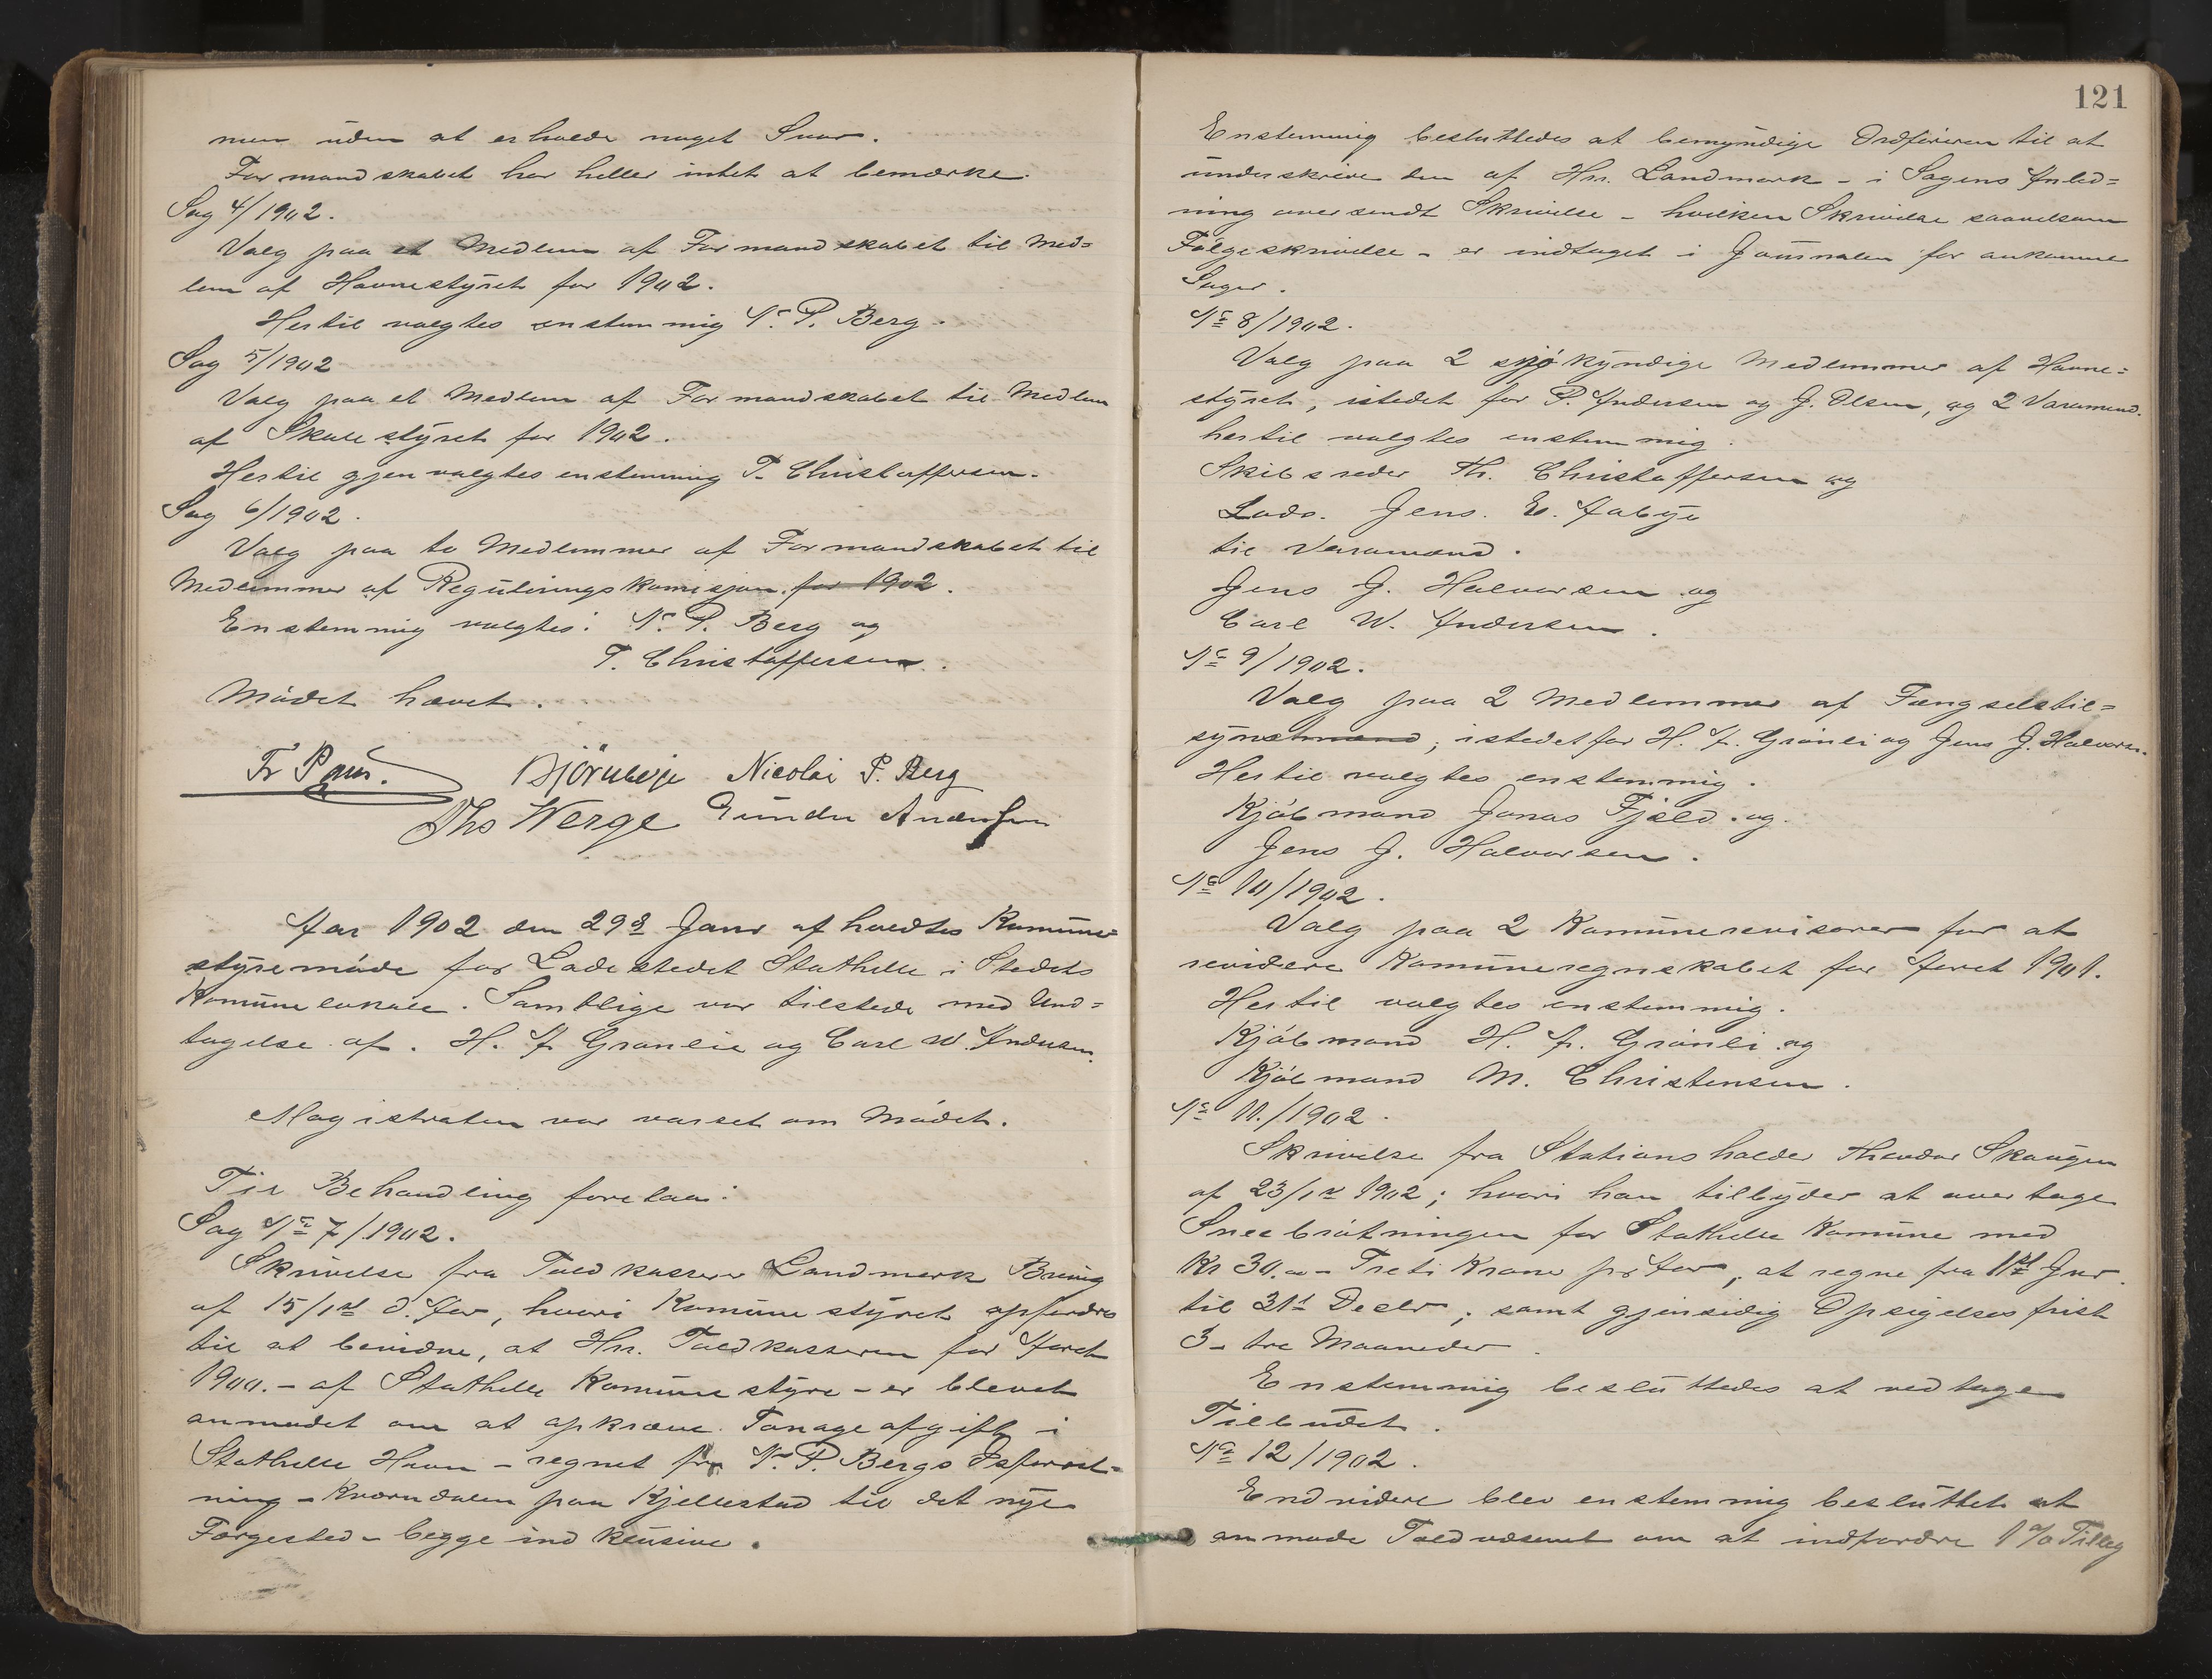 men uden at erholde noget Svar.
Formandskabet har heller intet at bemærke.
Sag 4/1902.
Valg paa et Medlem af Formandskabet til Med=
lem af Havnestyret for 1902.
Hertil valgtes enstemmig N. P. Berg.
Sag 5/1902
Valg paa et Medlem af Formandskabet til Medlem
af Skolestyret for 1902.
Hertil gjenvalgtes enstemmig T. Christoffersen.
Sag 6/1902.
Valg paa to Medlemmer af Formandskabet til
Medlemmer af Reguleringskomisjon for 1902.
Enstemmig valgtes: N. P. Berg og
T. Christoffersen.
Mödet hævet.
Fr Paus. Björnleje Nicolai P. Berg
Ths Werge Gunder Andersen
Aar 1902 den 29de Janr afholdtes Komune=
styremöde for Ladestedet Stathelle i Stedets
Komunelokale. Samtlige var tilstede med Und=
tagelse af. H. A. Grønlie og Carl W. Andersen.
Magistraten var varslet om Mödet.
Til Behandling forelaa:
Sag No 7/1902.
Skrivelse fra Toldkasserer Landmark Brevig
af 15/1st d. Aar, hvori Komunestyret opfordres
til at bevidne, at Hrr. Toldkassereren for Aaret
1900. - af Stathelle Komunestyre - er blevet
anmodet om at opkræve Tonageafgift i
Stathelle Havn - regnet fra N. P. Bergs Isforret-
ning - Kværndalen paa Kjellestad til det nye
Færgested - begge indklusive.
121
Enstemmig besluttedes at bemyndige Ordföreren til at
underskrive den af Hrr. Landmark - i Sagens Anled=
ning oversendt Skrivelse - hvilken Skrivelse saavelsom
Fölgeskrivelse - er indtaget i Journalen for ankomne
Sager.
No 8/1902.
Valg paa 2 sjökyndige Medlemmer af Havne=
styret, istedet for P. Andersen og J. Olsen, og 2 Varamænd.
hertil valgtes enstemmig.
Skibsreder Th. Christoffersen og
Lods. Jens. E. Aabye
til Varamænd.
Jens J. Halvorsen og
Carl W. Andersen.
No 9/1902.
Valg paa 2 Medlemmer af Fængselstil=
synsmænd, istedet for H. A. Grönli og Jens J. Halvorsen.
Hertil valgtes enstemmig.
Kjöbmand Jonas Fjeld. og
Jens J. Halvorsen.
No 10/1902.
Valg paa 2 Komunerevisorer for at
revidere Komuneregnskabet for Aaret 1901.
Hertil valgtes enstemmig.
Kjöbmand H. A. Grönli og
Kjöbmand M. Christensen.
No 11./1902.
Skrivelse fra Stationsholder Theodor Skougen
af 23/1st 1902; hvori han tilbyder at overtage
Sneebrötningen for Stathelle Komune med
Kr 30.00 - Treti Kroner pr Aar, at regne fra 1st Jnr.
til 31st Decbr; samt gjensidig Opsigelsesfrist
3 - tre Maaneder.
Enstemmig besluttedes at vedtage
Tilbudet.
No 12/1902.
Endvidere blev enstemmig besluttet at
anmode Toldvæsenet om at indfordre 1% Tillæg